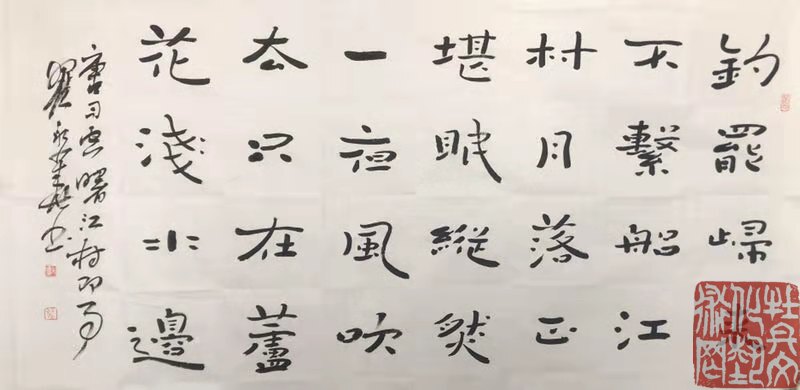 釣罷歸
不繫船江
村月落正
堪眠縱然
一夜風吹
去只在蘆
花淺水邊
唐司空曙江村即事